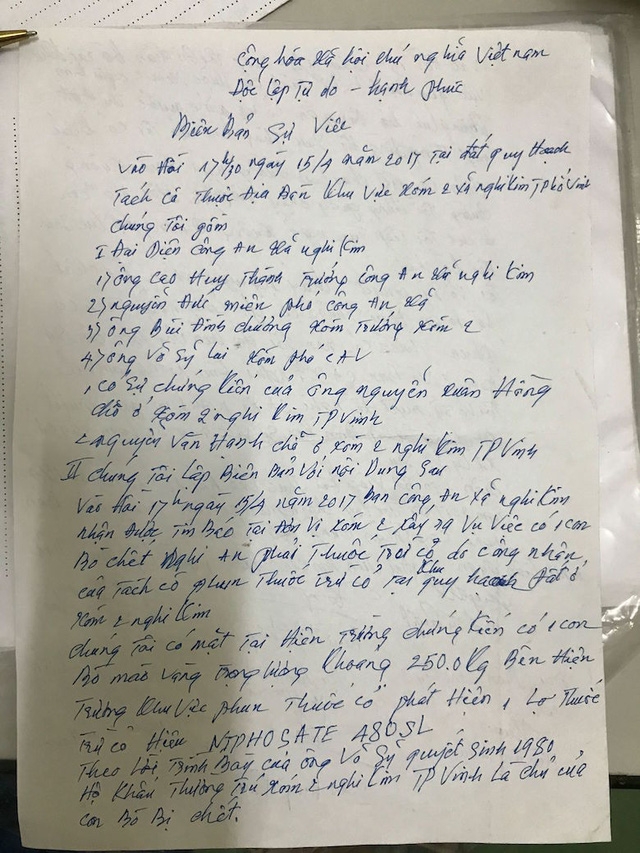 Cộng hóa xã hội chủ nghĩa Việt nam
Độc lập Tự do - hạnh phúc
Biên Bản Sự Việc
Vào Hồi 17h30 ngày 15/4 năm 2017 Tại đất quy Hoach
Tách cô Thuộc Địa Bàn Khu Vực xóm 2 xã nghi Kim TP Vinh
chúng Tôi gồm
I Đại Diện Công An xã nghi Kim
1) ông Cao Huy Thành Trưởng Công An xã nghi Kim
2) nguyễn Đức miên phó công An xã
3) ông Bùi Đình chương xóm Trưởng xóm 2
4) ông Võ Sỹ Lai xóm phó CAV
1, có sự chứng Kiến của ông nguyễn Xuân Hồng
chỗ ở xóm 2 nghi Kim TP Vinh
2 nguyễn Văn Hanh chỗ ở xóm 2 nghi Kim TP Vinh
II chúng Tôi Lập Biên Bản Với nội Dung Sau
Vào Hồi 17h ngày 15/4 năm 2017 Ban công An xã nghi Kim
nhận Được Tin Báo Tại Đơn Vị xóm 2 xẩy ra Vụ Việc có 1 con
Bò chết Nghi Ăn phải Thuốc Trừ cỏ do công nhân
của Tách cô phun Thuốc Trừ cỏ Tại Khu quy hoach Đất ở
xóm 2 nghi Kim
chúng Tôi có mặt Tại Hiện Trường chứng Kiến có 1 con
Bò màu Vàng Trọng lượng Khoảng 250.0 Kg Bên Hiện
Trường Khu Vực phun Thuốc cỏ phát Hiện 1 Lọ Thuốc
Trừ cỏ Hiệu NIPHOSATE 480SL
Theo Lời Trình Bày của ông Võ Sỹ quyết Sinh 1980
Hộ Khẩu Thường Trú xóm 2 nghi Kim TP Vinh Là chủ của
con Bò Bị chết.